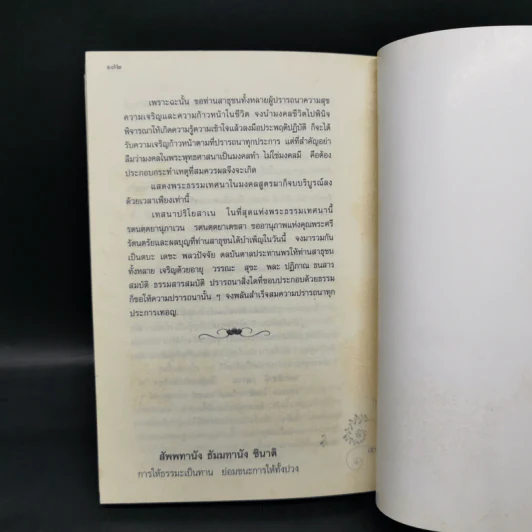 เพราะฉะนั้น ขอท่านสาธุชนทั้งหลายผู้ปรารถนาความสุข
ความเจริญและความก้าวหน้าในชีวิต จงนำมงคลชีวิตไปพินิจ
พิจารณาให้เกิดความรู้ความเข้าใจแล้วลงมือประพฤติปฏิบัติ ก็จะได้
รับความเจริญก้าวหน้าตามที่ปรารถนาทุกประการ แต่ที่สำคัญอย่า
ลืมว่ามงคลในพระพุทธศาสนาเป็นมงคลทำ ไม่ใช่มงคลมี คือต้อง
ประกอบกระทำเหตุที่สมควรผลจึงจะเกิด
แสดงพระธรรมเทศนาในมงคลสูตรมาก็จบบริบูรณ์ลง
ด้วยเวลาเพียงเท่านี้
เทสนาปริโยสาเน ในที่สุดแห่งพระธรรมเทศนานี้
รตนตฺตยานุภาเวน รตนตฺตยาเตชสา ขออานุภาพแห่งคุณพระศรี
รัตนตรัยและผลบุญที่ท่านสาธุชนได้บำเพ็ญในวันนี้ จงมารวมกัน
เป็นตบะ เดชะ พลวปัจจัย ดลบันดาลประทานพรให้ท่านสาธุชน
ทั้งหลาย เจริญด้วยอายุ วรรณะ สุขะ พละ ปฏิภาณ ธนสาร
สมบัติ ธรรมสารสมบัติ ปรารถนาสิ่งใดที่ชอบประกอบด้วยธรรม
ก็ขอให้ความปรารถนานั้น ๆ จงพลันสำเร็จสมความปรารถนาทุก
ประการเทอญ.
สัพพทานัง ธัมมทานัง ชินาติ
การให้ธรรมะเป็นทาน ย่อมชนะการให้ทั้งปวง